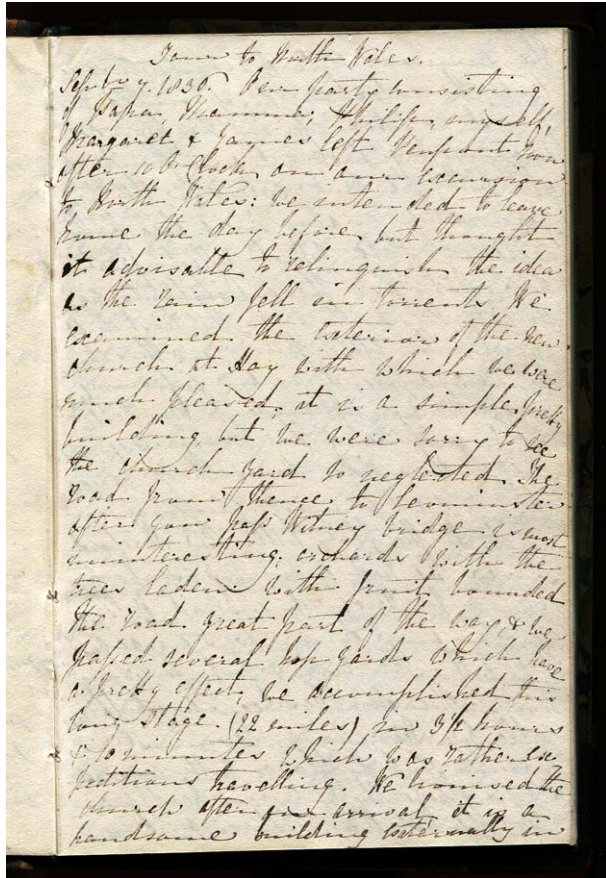 Tour to North Wales.
Septbr 7. 1836. Our party consisting
of Papa, Mamma, Philip, myself,
Margaret & Jaynes left
after 10 o'Clock on our excursion
to North Wales: we intended to leave
home the day before but thought
it advisable to relinquish the idea
as the rain fell in torrents. We
examined the exterior of the new
church at Hay with which we were
much pleased, it is a simple pretty
building, but we were sorry to see
the church yard so neglected. The
road from thence to Leominster
after you pass Witney bridge is most
uninteresting; orchards with the
trees laden with fruit bounded
the road great part of the way & we
passed several hop yards which have
a pretty effect, we accomplished this
long stage. (22 miles) in 3½ hours
& 10 minutes which was rather ex
peditious travelling. We the
church after our arrival it is a
handsome building externally in